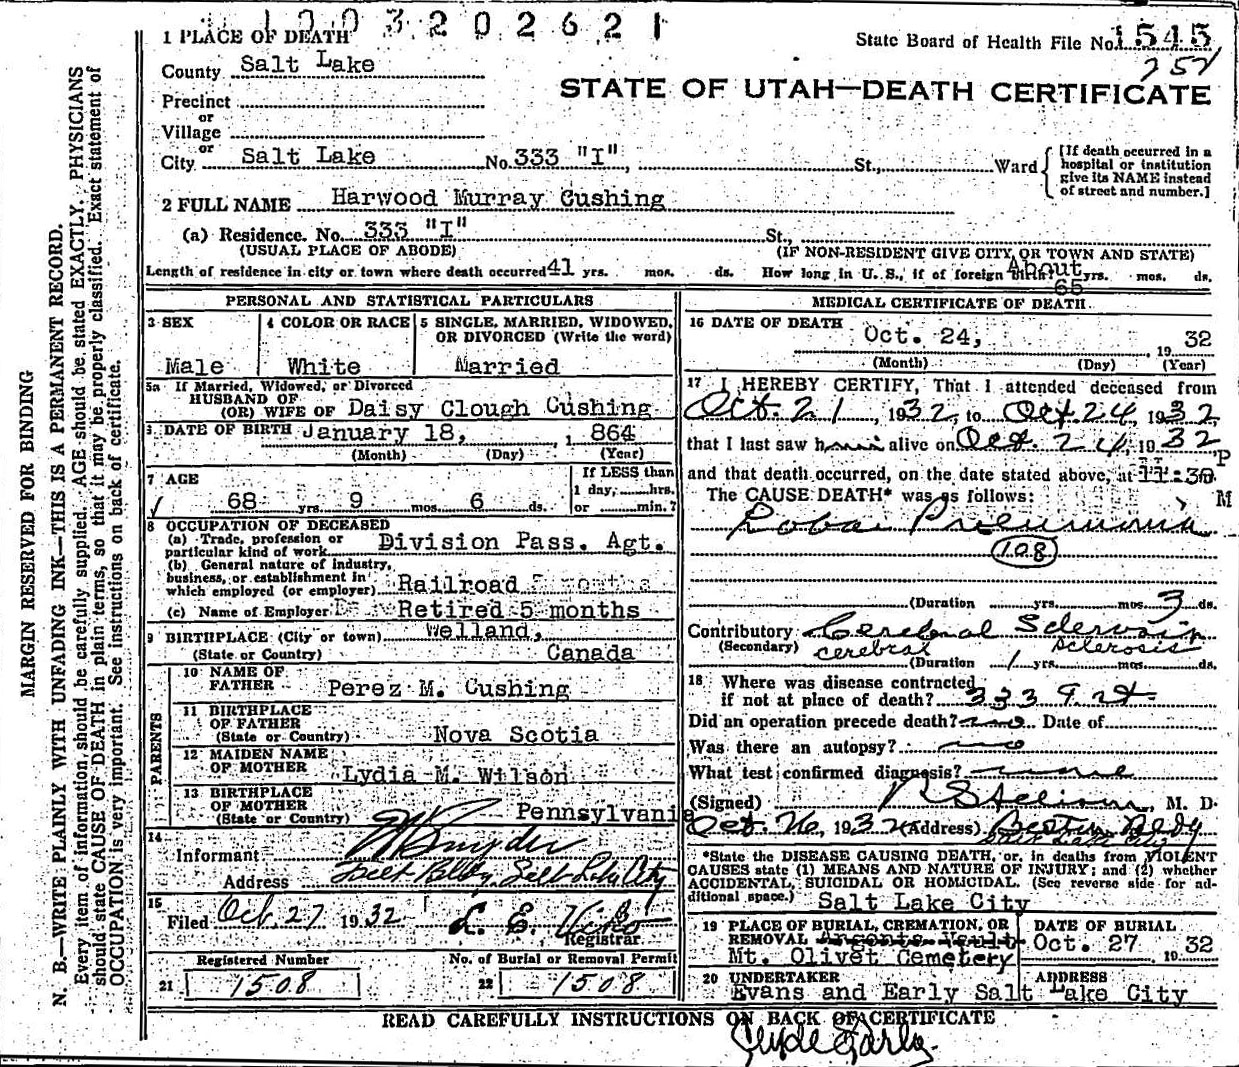 1003202621
State Board of Health File No. 1545
257
STATE OF UTAH—DEATH CERTIFICATE
1 PLACE OF DEATH
County Salt Lake
Precinct
or
Village
or
City Salt Lake No. 333 "I" St., Ward
[If death occurred in a hospital or institution give its NAME instead of street and number.]
2 FULL NAME Harwood Murray Cushing
(a) Residence. No. 333 "I" St.,
(USUAL PLACE OF ABODE) (IF NON-RESIDENT GIVE CITY, OR TOWN AND STATE)
Length of residence in city or town where death occurred 41 yrs. mos. ds. How long in U. S., if of foreign birth? About 65 yrs. mos. ds.
PERSONAL AND STATISTICAL PARTICULARS
3 SEX
Male
4 COLOR OR RACE
White
5 SINGLE, MARRIED, WIDOWED, OR DIVORCED (Write the word)
Married
5a If Married, Widowed, or Divorced
HUSBAND OF
(OR) WIFE OF Daisy Clough Cushing
DATE OF BIRTH January 18, 1864
(Month) (Day) (Year)
7 AGE
68 yrs. 9 mos. 6 ds.
If LESS than
1 day, hrs.
or min.?
8 OCCUPATION OF DECEASED
(a) Trade, profession or
particular kind of work Division Pass. Agt.
(b) General nature of industry,
business, or establishment in
which employed (or employer) Railroad
(c) Name of Employer Retired 5 months
9 BIRTHPLACE (City or town) Welland,
(State or Country) Canada
PARENTS
10 NAME OF
FATHER Perez M. Cushing
11 BIRTHPLACE
OF FATHER
(State or Country) Nova Scotia
12 MAIDEN NAME
OF MOTHER Lydia M. Wilson
13 BIRTHPLACE
OF MOTHER
(State or Country) Pennsylvania
14
Informant Snyder
Address Salt Lake City
15
Filed Oct. 27 1932
Registrar
Registered Number
21 1508
No. of Burial or Removal Permit
22 1508
MEDICAL CERTIFICATE OF DEATH
16 DATE OF DEATH
Oct. 24, 1932
(Month) (Day) (Year)
17 I HEREBY CERTIFY, That I attended deceased from
Oct. 21, 1932, to Oct. 24, 1932,
that I last saw him alive on Oct. 24, 1932
and that death occurred, on the date stated above, at 11:30 P M
The CAUSE DEATH* was as follows:
Lobar Pneumonia
108
(Duration yrs. mos. 3 ds.
Contributory Cerebral Sclerosis
(Secondary) cerebral sclerosis
(Duration 1 yrs. mos. ds.
18 Where was disease contracted
if not at place of death? 333
Did an operation precede death? no Date of
Was there an autopsy? no
What test confirmed diagnosis? none
(Signed) , M. D.
Oct. 26, 1932 (Address)
Salt Lake City
*State the DISEASE CAUSING DEATH, or, in deaths from VIOLENT CAUSES state (1) MEANS AND NATURE OF INJURY; and (2) whether ACCIDENTAL, SUICIDAL OR HOMICIDAL. (See reverse side for additional space.) Salt Lake City
19 PLACE OF BURIAL, CREMATION, OR
REMOVAL Argents Vault
Mt. Olivet Cemetery
DATE OF BURIAL
Oct. 27 1932
20 UNDERTAKER
Evans and Early
ADDRESS
Salt Lake City
READ CAREFULLY INSTRUCTIONS ON BACK OF CERTIFICATE
Clyde Early
MARGIN RESERVED FOR BINDING
N. B.—WRITE PLAINLY WITH UNFADING INK—THIS IS A PERMANENT RECORD.
Every item of information should be carefully supplied. AGE should be stated EXACTLY. PHYSICIANS
should state CAUSE OF DEATH in plain terms, so that it may be properly classified. Exact statement of
OCCUPATION is very important. See instructions on back of certificate.